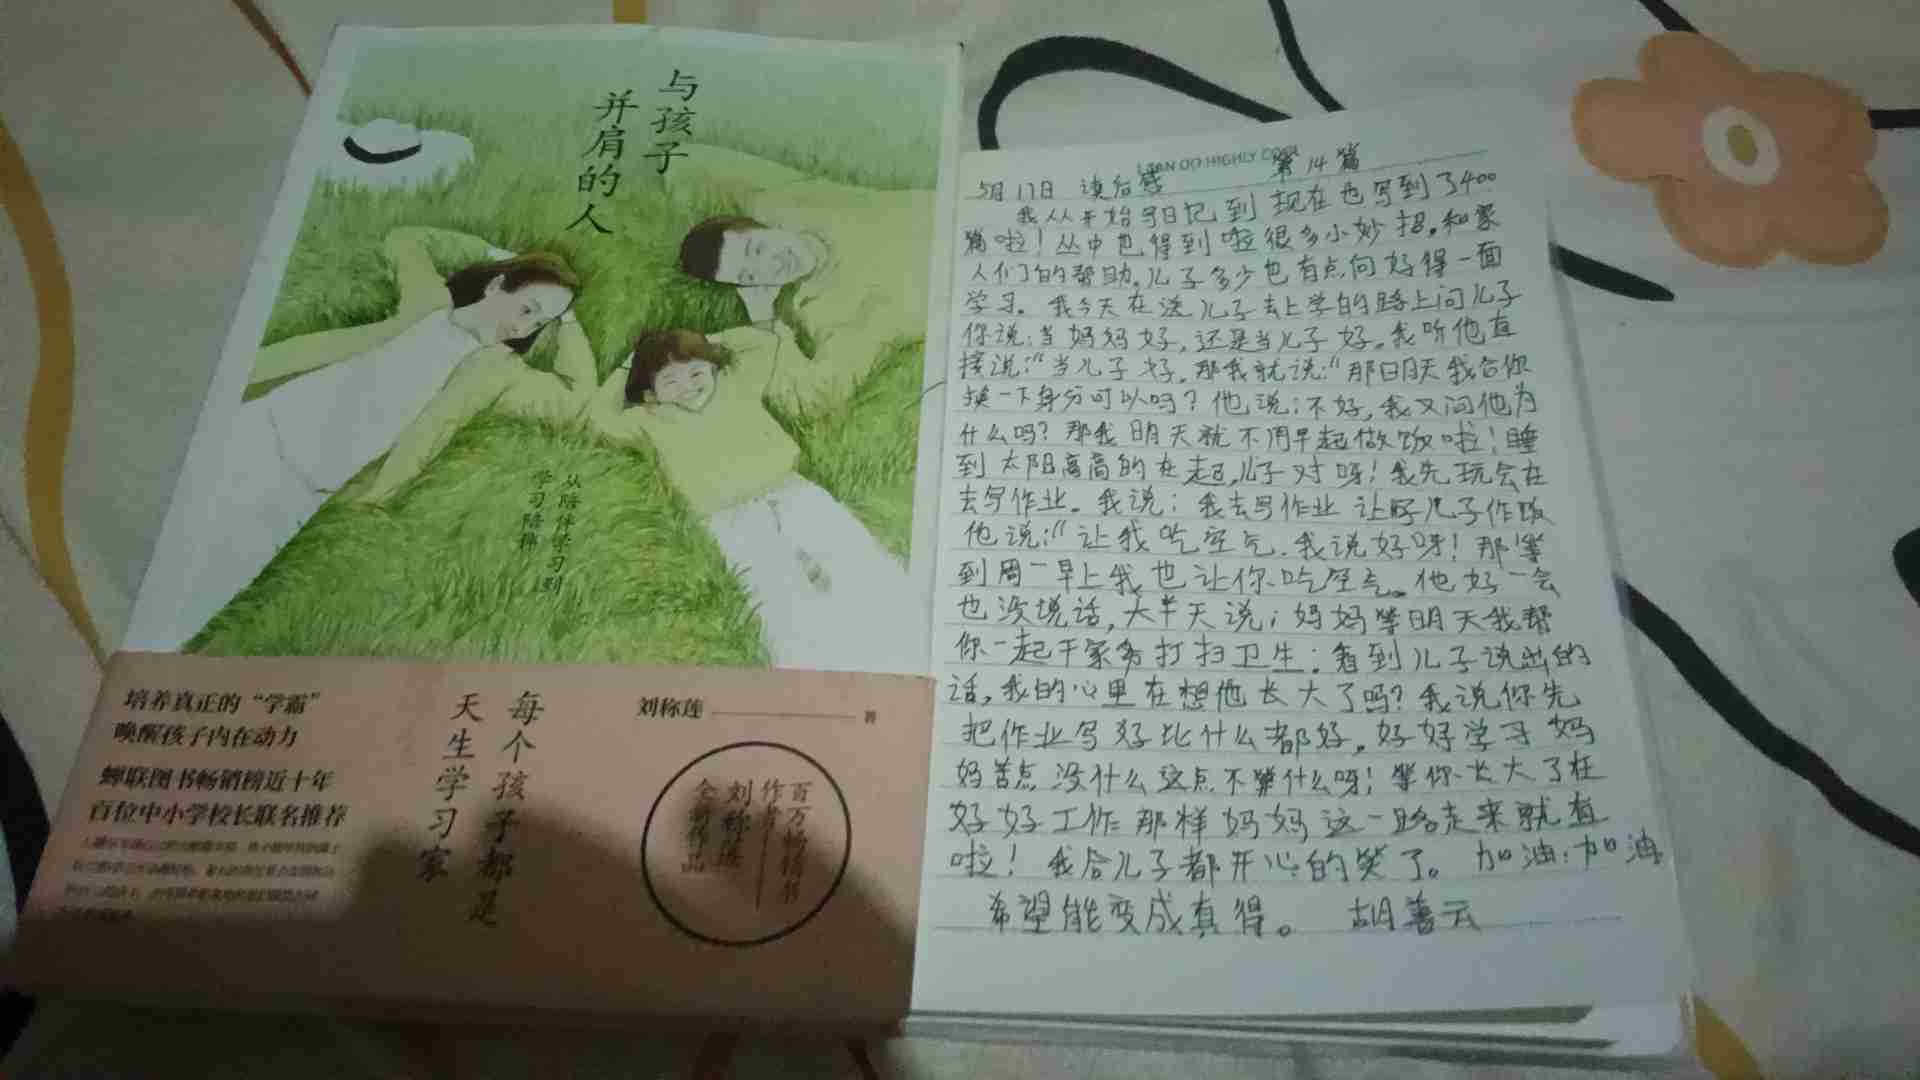 与孩子
并肩的人
从陪伴学习到
学习陪伴
培养真正的“学霸”
唤醒孩子内在动力
蝉联图书畅销榜近十年
百位中小学校长联名推荐
每个孩子都是
天生学习家
刘称莲 著
百万畅销书
作者
刘称莲
全新作品
HIGHLY
5月17日 读后感 第14篇
我从开始写日记到现在也写到了400
篇啦!丛中也得到啦很多小妙招。和家
人们的帮助。儿子多少也有点向好得一面
学习。我今天在送儿子去上学的路上问儿子
你说:当妈妈好,还是当儿子好。我听他直
接说:“当儿子好。那我就说:“那明天我合你
换一下身分可以吗?他说:不好,我又问他为
什么吗?那我明天就不用早起做饭啦!睡
到太阳高高的在起,儿子对呀!我先玩会在
去写作业。我说:我去写作业让好儿子作饭
他说:“让我吃空气.我说好呀!那等
到周一早上我也让你吃空气。他好一会
也没说话,大半天说:妈妈等明天我帮
你一起干家务打扫卫生:看到儿子说出的
话,我的心里在想他长大了吗?我说你先
把作业写好比什么都好。好好学习妈
妈苦点没什么这点不算什么呀!等你长大了在
好好工作那样妈妈这一路走来就值
啦!我合儿子都开心的笑了。加油:加油
希望能变成真得。 胡善云